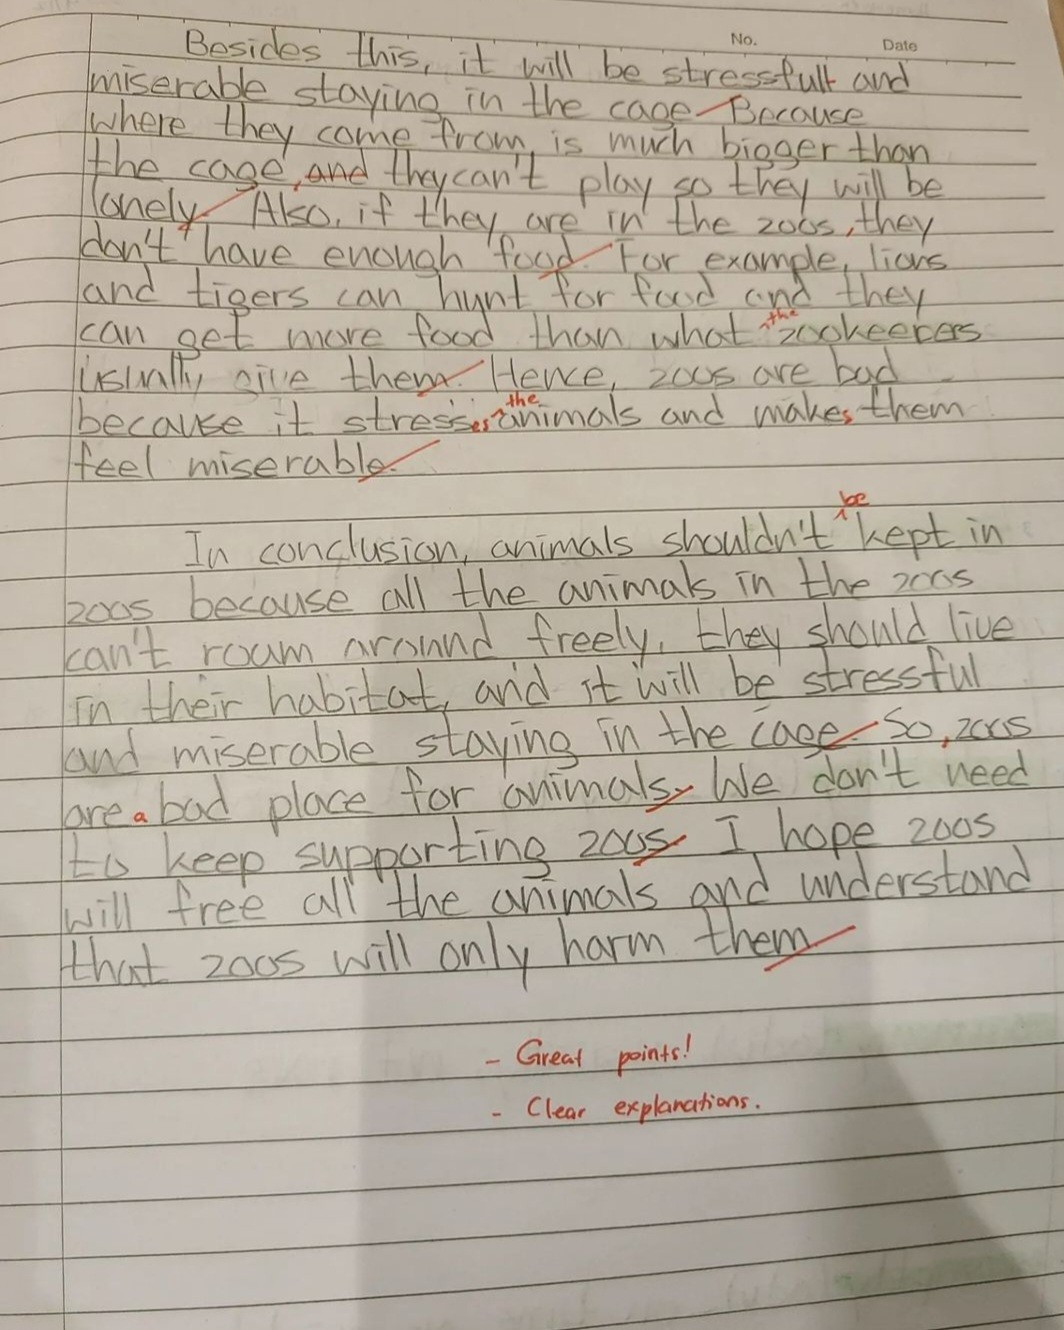 No. Date
Besides this, it will be stressfull and
miserable staying in the cage. Because
where they come from, is much bigger than
the cage, and they can't play so they will be
lonely. Also, if they are in the zoos, they
don't have enough food. For example, lions
and tigers can hunt for food and they
can get more food than what the zookeepers
usually give them. Hence, zoos are bad
because it stresses the animals and makes them
feel miserable.
In conclusion, animals shouldn't be kept in
zoos because all the animals in the zoos
can't roam around freely, they should live
in their habitat, and it will be stressful
and miserable staying in the cage. So, zoos
are a bad place for animals. We don't need
to keep supporting zoos. I hope zoos
will free all the animals and understand
that zoos will only harm them
- Great points!
- Clear explanations.